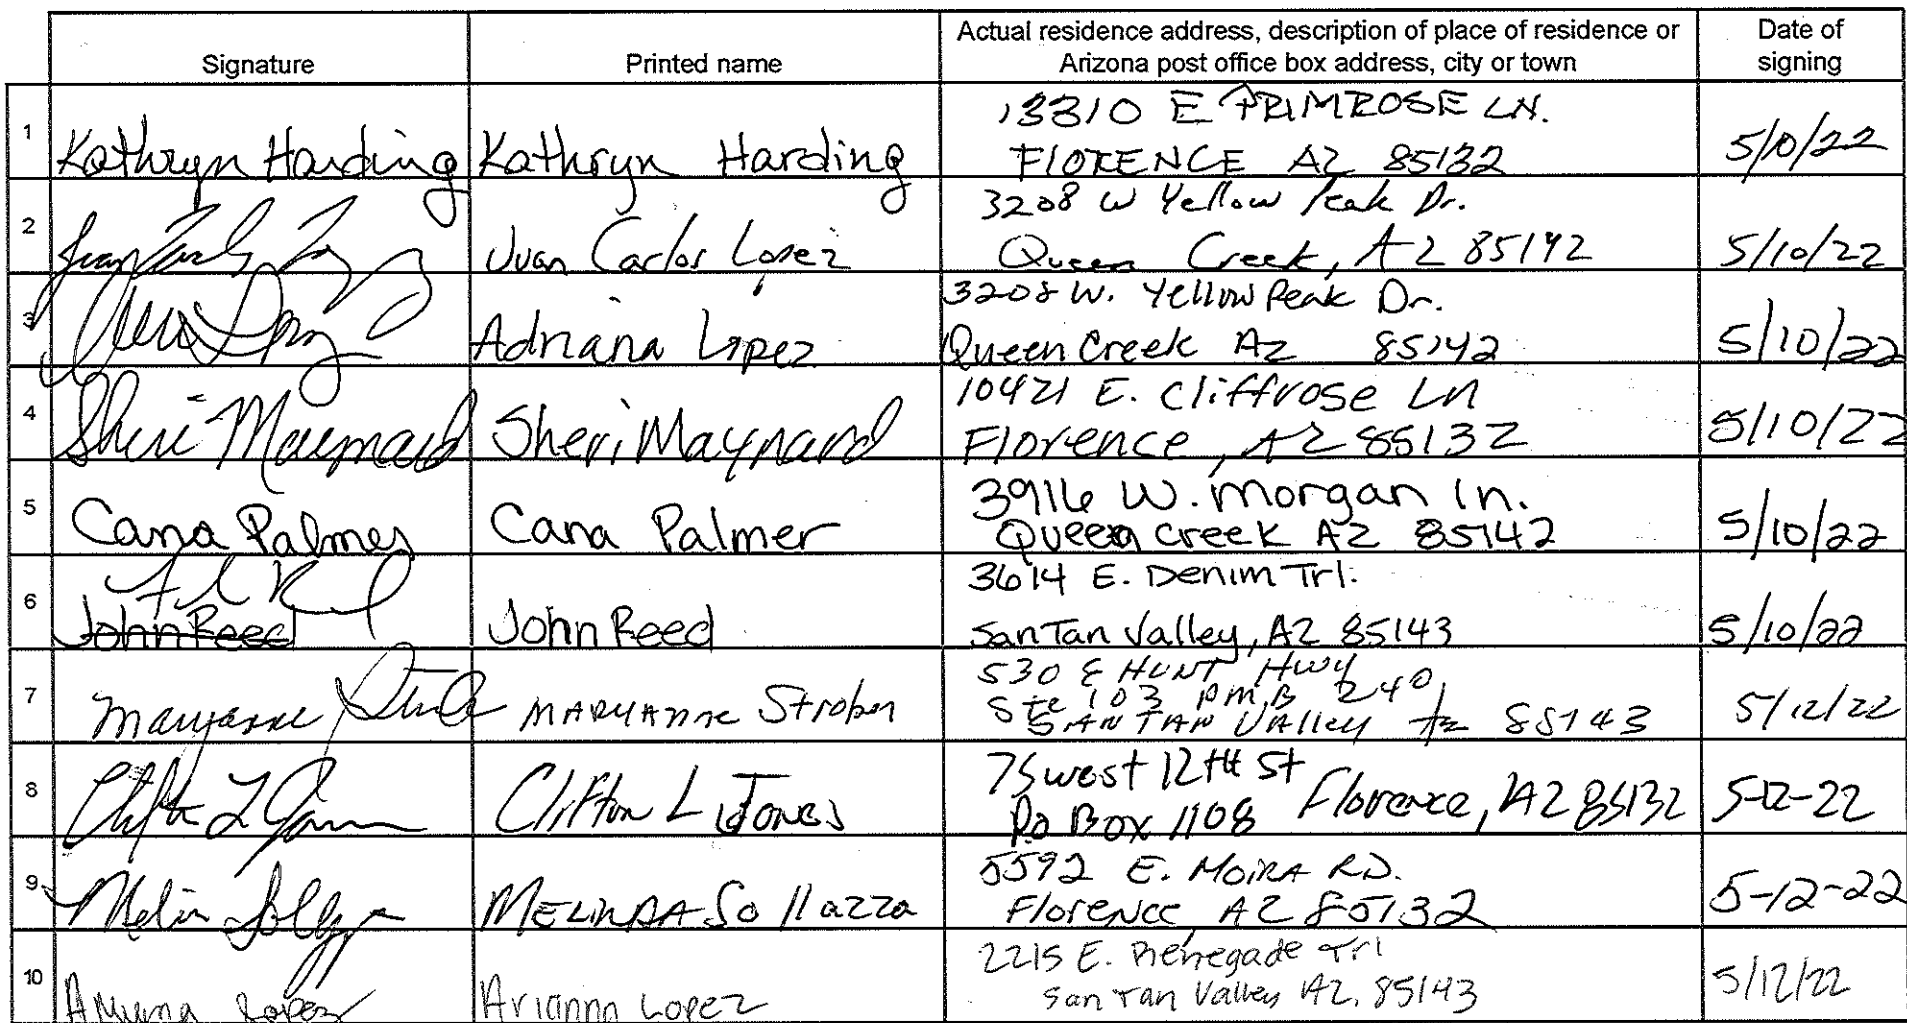 Signature
Printed name
Actual residence address, description of place of residence or
Arizona post office box address, city or town
Date of
signing
1
Kathryn Harding
Kathryn Harding
13310 E PRIMROSE LN.
FLORENCE AZ 85132
5/10/22
2
Juan Carlos Lopez
3208 W Yellow Peak Dr.
Queen Creek, AZ 85142
5/10/22
3
Adriana Lopez
3208 W. Yellow Peak Dr.
Queen Creek AZ 85142
5/10/22
4
Sheri Maynard
Sheri Maynard
10421 E. Cliffrose Ln
Florence, AZ 85132
5/10/22
5
Cana Palmer
Cana Palmer
3916 W. Morgan ln.
Queen Creek AZ 85142
5/10/22
6
John Reed
John Reed
3614 E. Denim Trl.
San Tan Valley, AZ 85143
5/10/22
7
Maryanne
MARYANNE Stroben
530 E HUNT HWY
Ste 103 PMB 240
SAN TAN VAlley Az 85143
5/12/22
8
Clifton L Jones
75 west 12th St
Po Box 1108 Florence, AZ 85132
5-12-22
9
MELINDA Sollazzo
5592 E. MOIRA RD.
Florence AZ 85132
5-12-22
10
Arianna Lopez
Arianna Lopez
2215 E. Renegade Trl
San Tan Valley AZ, 85143
5/12/22